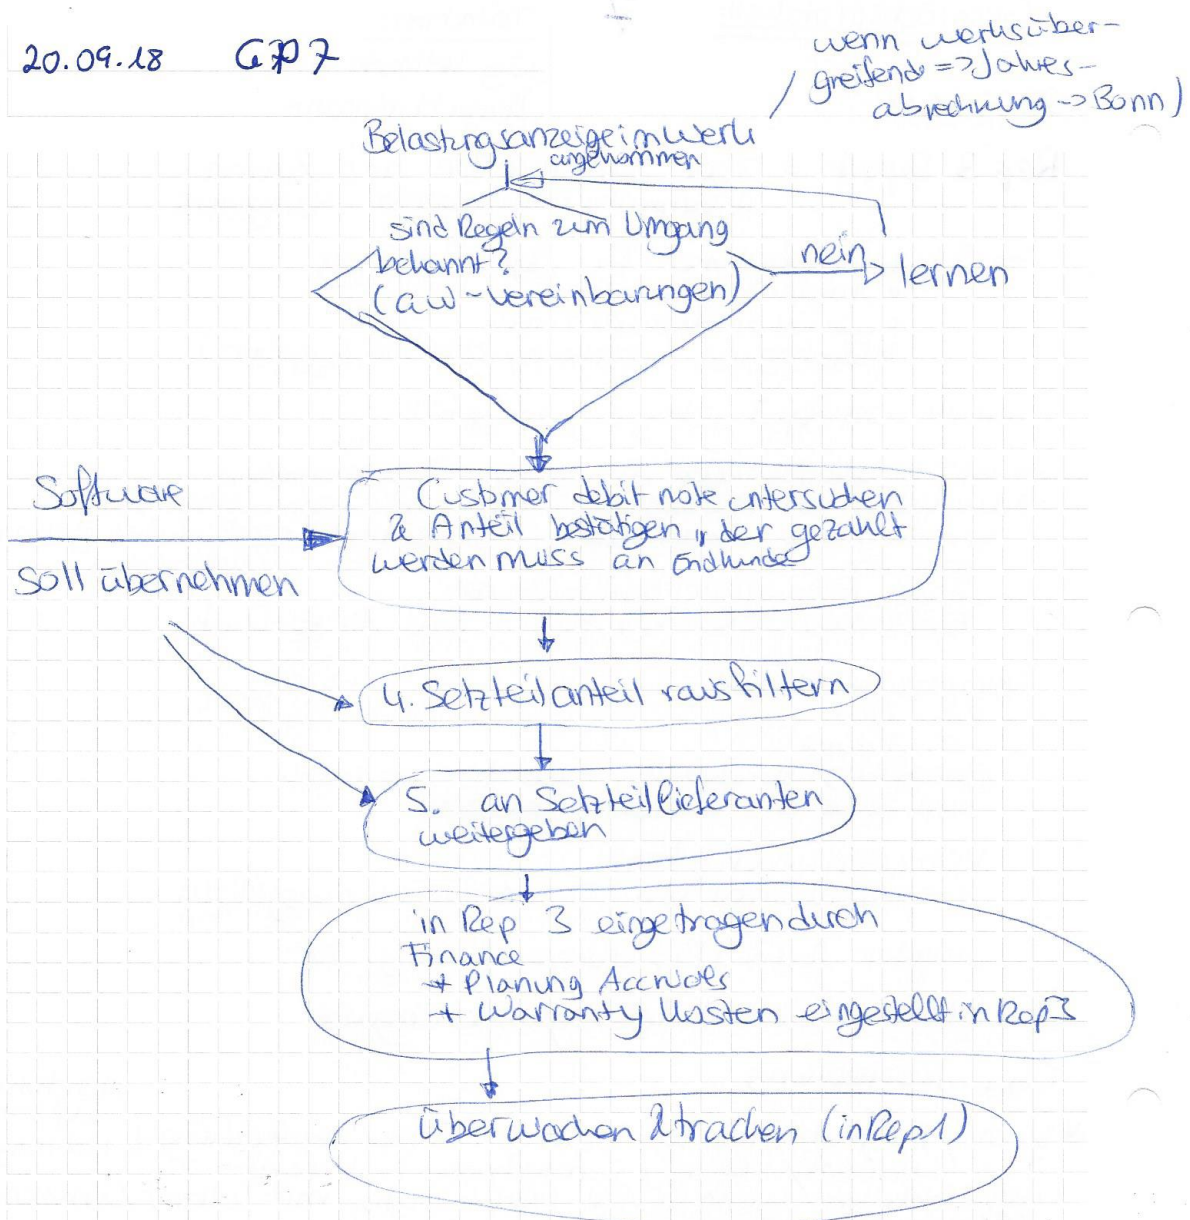 20.09.18 GP7
wenn werksüber-
greifend => Jahres-
abrechnung -> Bonn)
Belastungsanzeige im Werk
angenommen
sind Regeln zum Umgang
bekannt?
(GW-Vereinbarungen)
nein
lernen
Software
soll übernehmen
Customer debit note untersuchen
& Anteil bestätigen, der gezahlt
werden muss an Endkunde
4. Setzteilanteil rausfiltern
5. an Setzteillieferanten
weitergeben
in Rep 3 eingetragen durch
Finance
+ Planung Accruals
+ Warranty Kosten eingestellt in Rep3
überwachen & tracken (in Rep1)